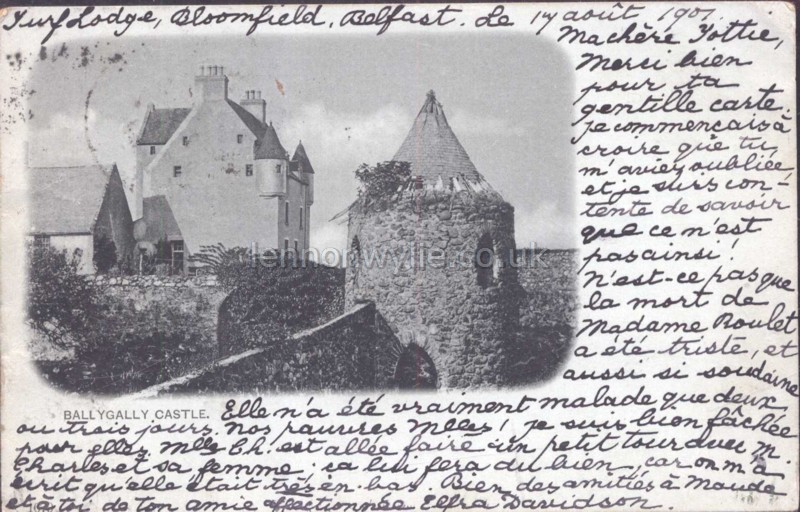 Turf Lodge, Bloomfield, Belfast. Le 17 août 1901
Ma chère Tottie,
Merci bien
pour ta
gentille carte.
je commençais à
croire que tu
m'aviez oubliée,
et je suis con-
tente de savoir
que ce n'est
pas ainsi!
N'est-ce pas que
la mort de
Madame Roulet
a été triste, et
aussi si soudaine
lennonwylie.co.uk
BALLYGALLY CASTLE.
Elle n'a été vraiment malade que deux
ou trois jours. Nos pauvres Mlles! je suis bien fâchée
pour elles. Mlle Ch. est allée faire un petit tour avec M.
Charles et sa femme: ça lui fera du bien, car on m'a
écrit qu'elle était très en-bas. Bien des amitiés à Maude
et à toi de ton amie affectionnée Elfra Davidson.